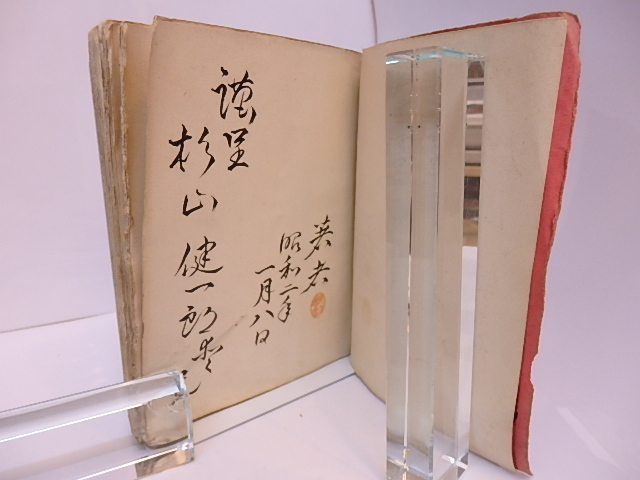 昭和二年
一月八日
謹呈
杉山健一郎